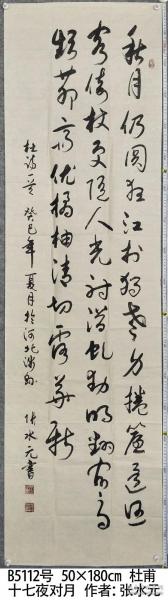 秋月仍圆夜江村独老身捲簾還照
客倚杖更随人光射潜虬動明翻宿鳥
频茅斋依橘柚清切露華新
杜诗一首 癸巳年夏月於河北
水元書
B5112号 50×180cm 杜甫
十七夜对月 作者:张水元